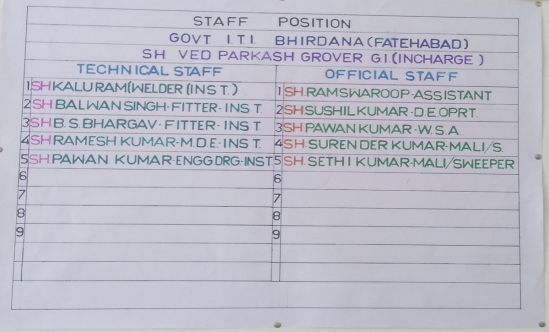 STAFF POSITION
GOVT I.T.I. BHIRDANA (FATEHABAD)
SH VED PARKASH GROVER G.I.(INCHARGE)
TECHNICAL STAFF
1 SH KALURAM(WELDER (INST.)
2 SH BALWAN SINGH-FITTER-INST
3 SH B.S.BHARGAV-FITTER-INST
4 SH RAMESH KUMAR-M.D.E-INST.
5 SH PAWAN KUMAR-ENGG DRG-INST
6
7
8
9
OFFICIAL STAFF
1 SH. RAMSWAROOP-ASSISTANT
2 SH. SUSHIL KUMAR-D E OPRT.
3 SH. PAWAN KUMAR-W.S.A
4 SH. SURENDER KUMAR-MALI/S.
5 SH. SETHI KUMAR-MALI/SWEEPER
6
7
8
9